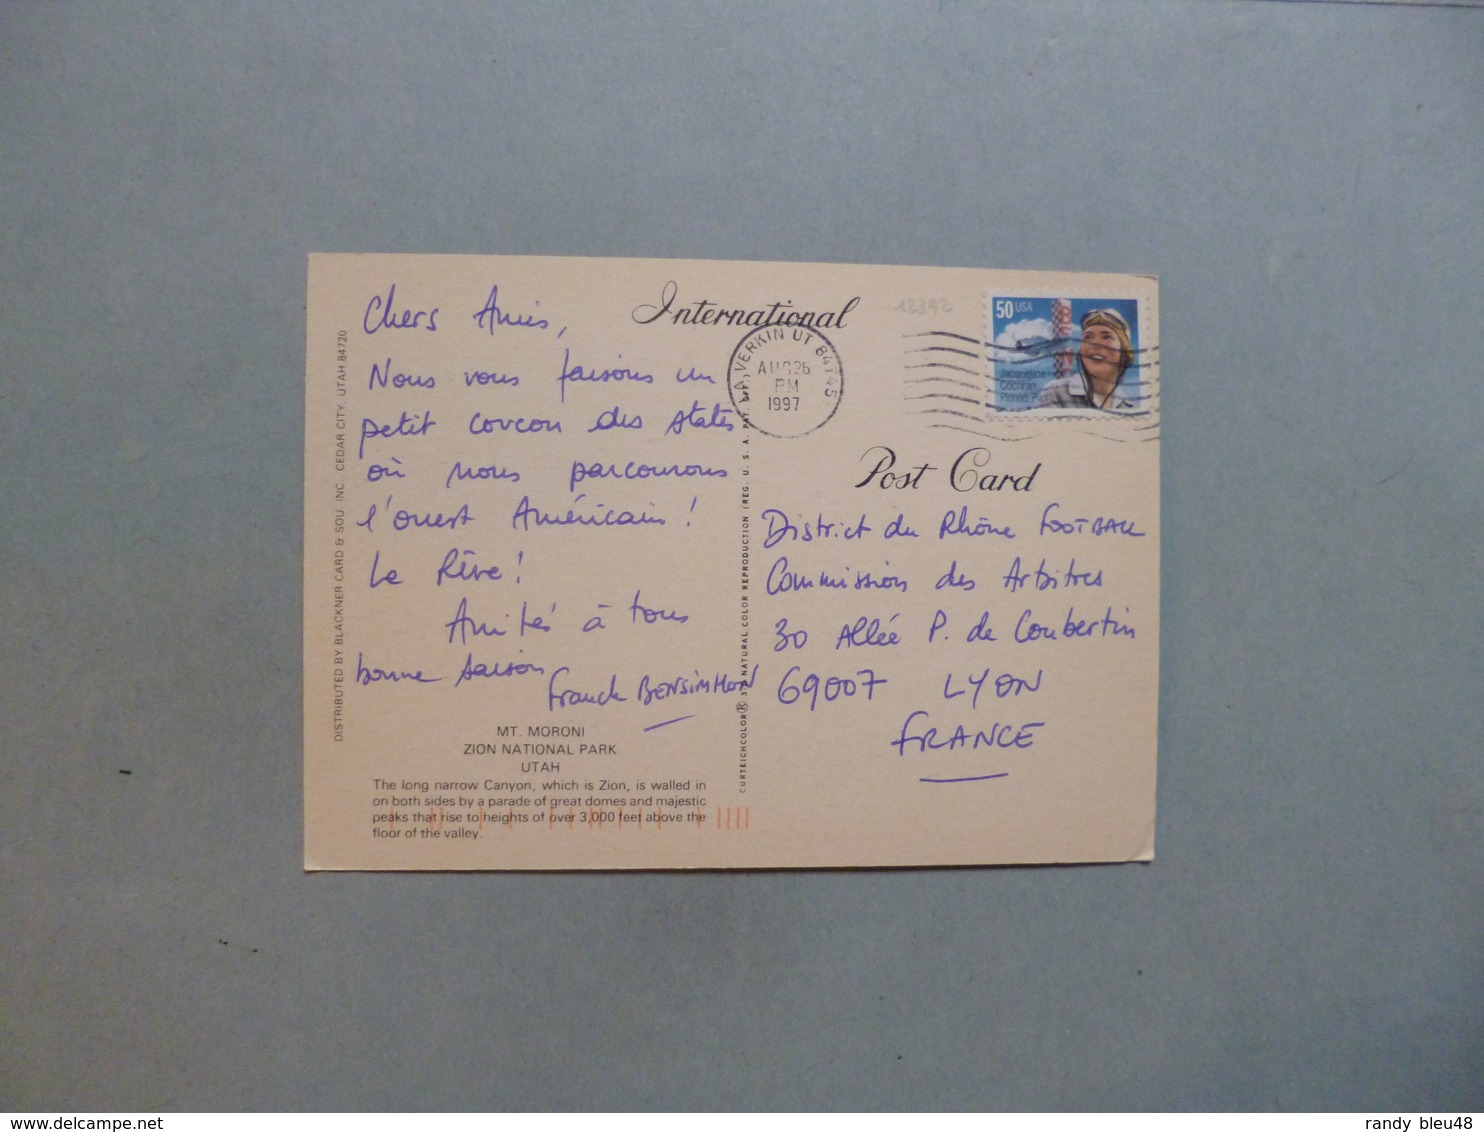 Chers Amis,
Nous vous faisons un
petit coucou des states
où nous parcourons
l'ouest Américain !
Le Rêve !
Amitiés à tous
bonne saison
Franck BENSIMHON
MT. MORONI
ZION NATIONAL PARK
UTAH
The long narrow Canyon, which is Zion, is walled in
on both sides by a parade of great domes and majestic
peaks that rise to heights of over 3,000 feet above the
floor of the valley.
DISTRIBUTED BY BLACKNER CARD & SOU. INC., CEDAR CITY, UTAH 84720
CURTEICHCOLOR® 3-D NATURAL COLOR REPRODUCTION (REG. U. S. A. PAT.
International
12392
LA VERKIN UT 84745
AUG 26
PM
1997
50 USA
Jacqueline
Cochran
Pioneer Pilot
Post Card
District du Rhône FOOTBALL
Commission des Arbitres
30 Allée P. de Coubertin
69007 LYON
FRANCE
randy bleu48